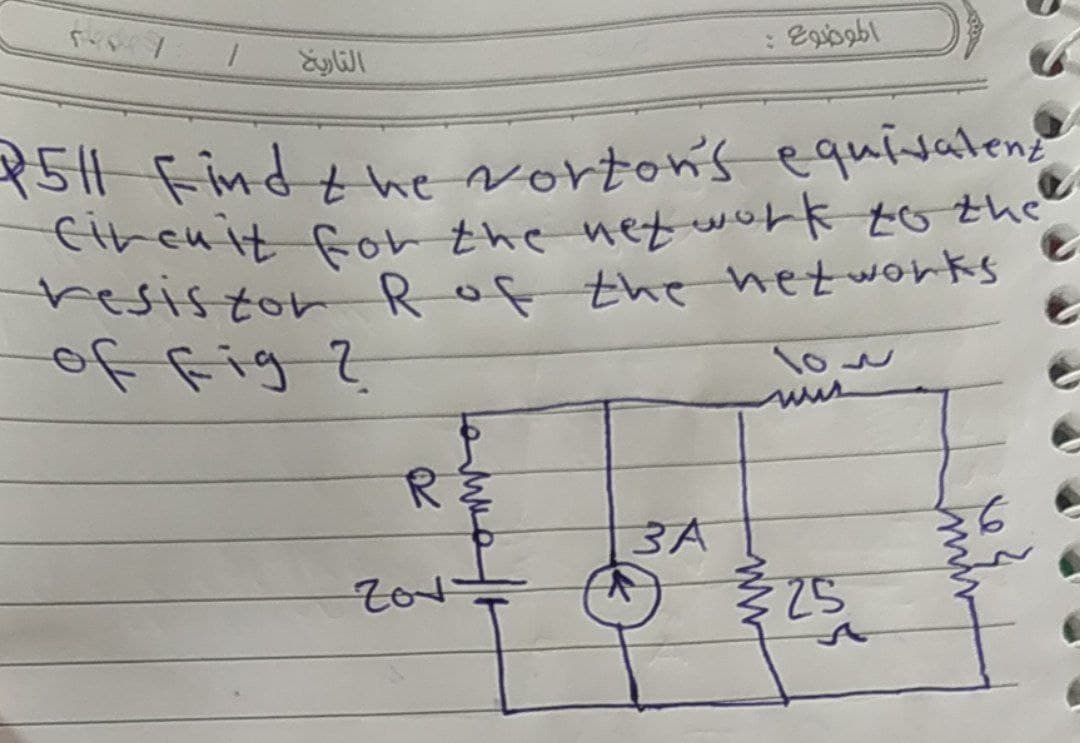 الموضوع :
التاريخ / /
P5// Find the Norton's equivalent
circuit for the network to the
resistor R of the networks
of Fig ?
10 Ω
R
3A
6 Ω
20V
25 Ω